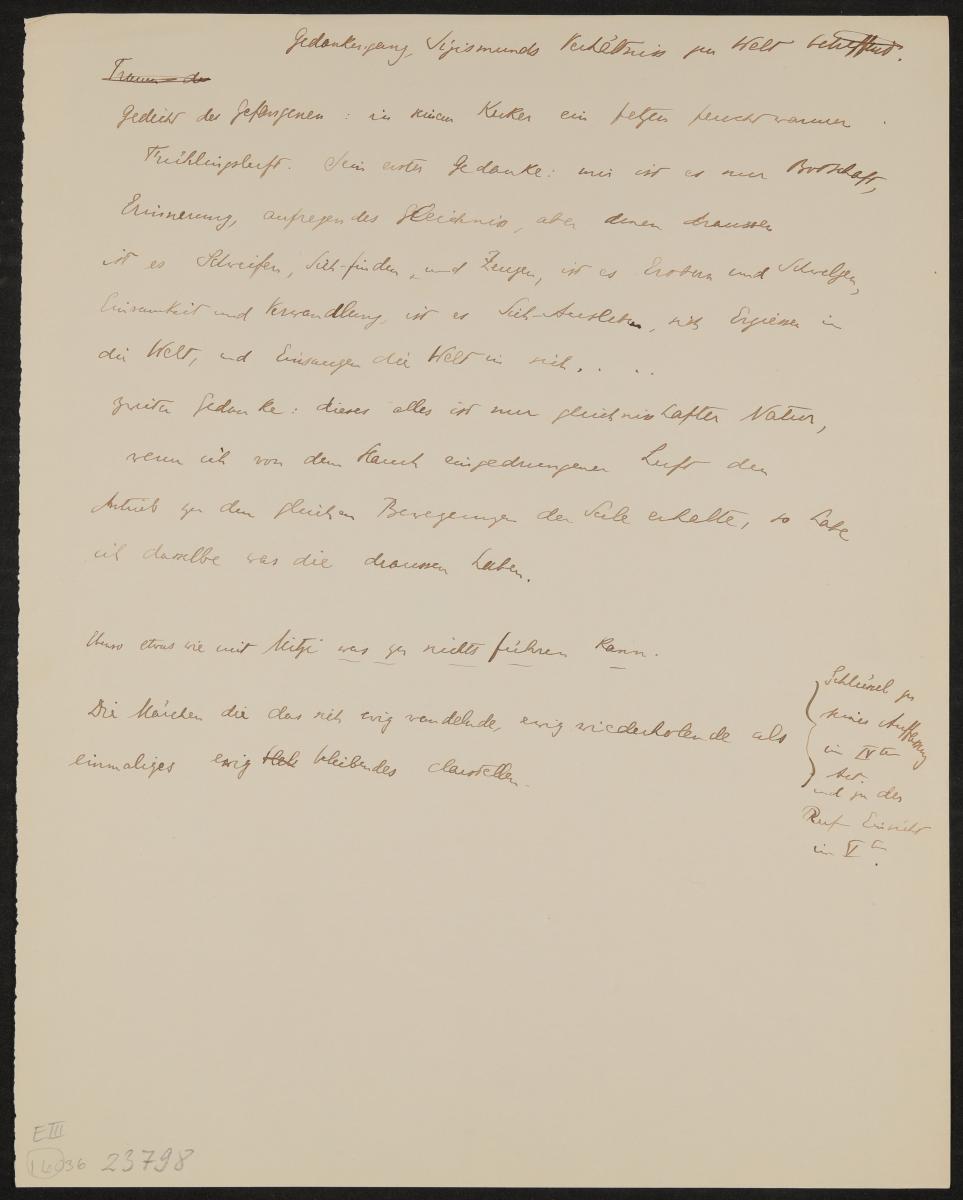 Gedankengang, Sigismunds Verhältniss zur Welt betreffend.
Traum – de
Gedicht des Gefangenen: in seinen Kerker ein fetzen feuchtwarmer
Frühlingsluft. Sein erster Gedanke: mir ist es nur Botschaft,
Erinnerung, aufregendes Gleichniss, aber denen draussen
ist es Schweifen, Sich-finden, und Zeugen, ist es Erobern und Schwelgen,
Einsamkeit und Verwandlung, ist es Sich-Ausleben, sich Ergiessen in
die Welt, und Einsaugen die Welt in sich. . . .
zweiter Gedanke: dieses alles ist nur gleichnisshafter Natur,
wenn ich von dem Hauch eingedrungener Luft den
Antrieb zu den gleichen Bewegungen der Seele erhalte, so habe
ich dasselbe was die draussen haben.
etwas wie mit Mitzi was zu nichts führen kann.
Die Märchen die das sich ewig wandelnde, ewig wiederholende als
einmaliges ewig bleibendes darstellen.
Schlüssel zu
seiner Auffassung
im IV ten
Act.
und zu der
Einsicht
im V ten.
E III
36 23798